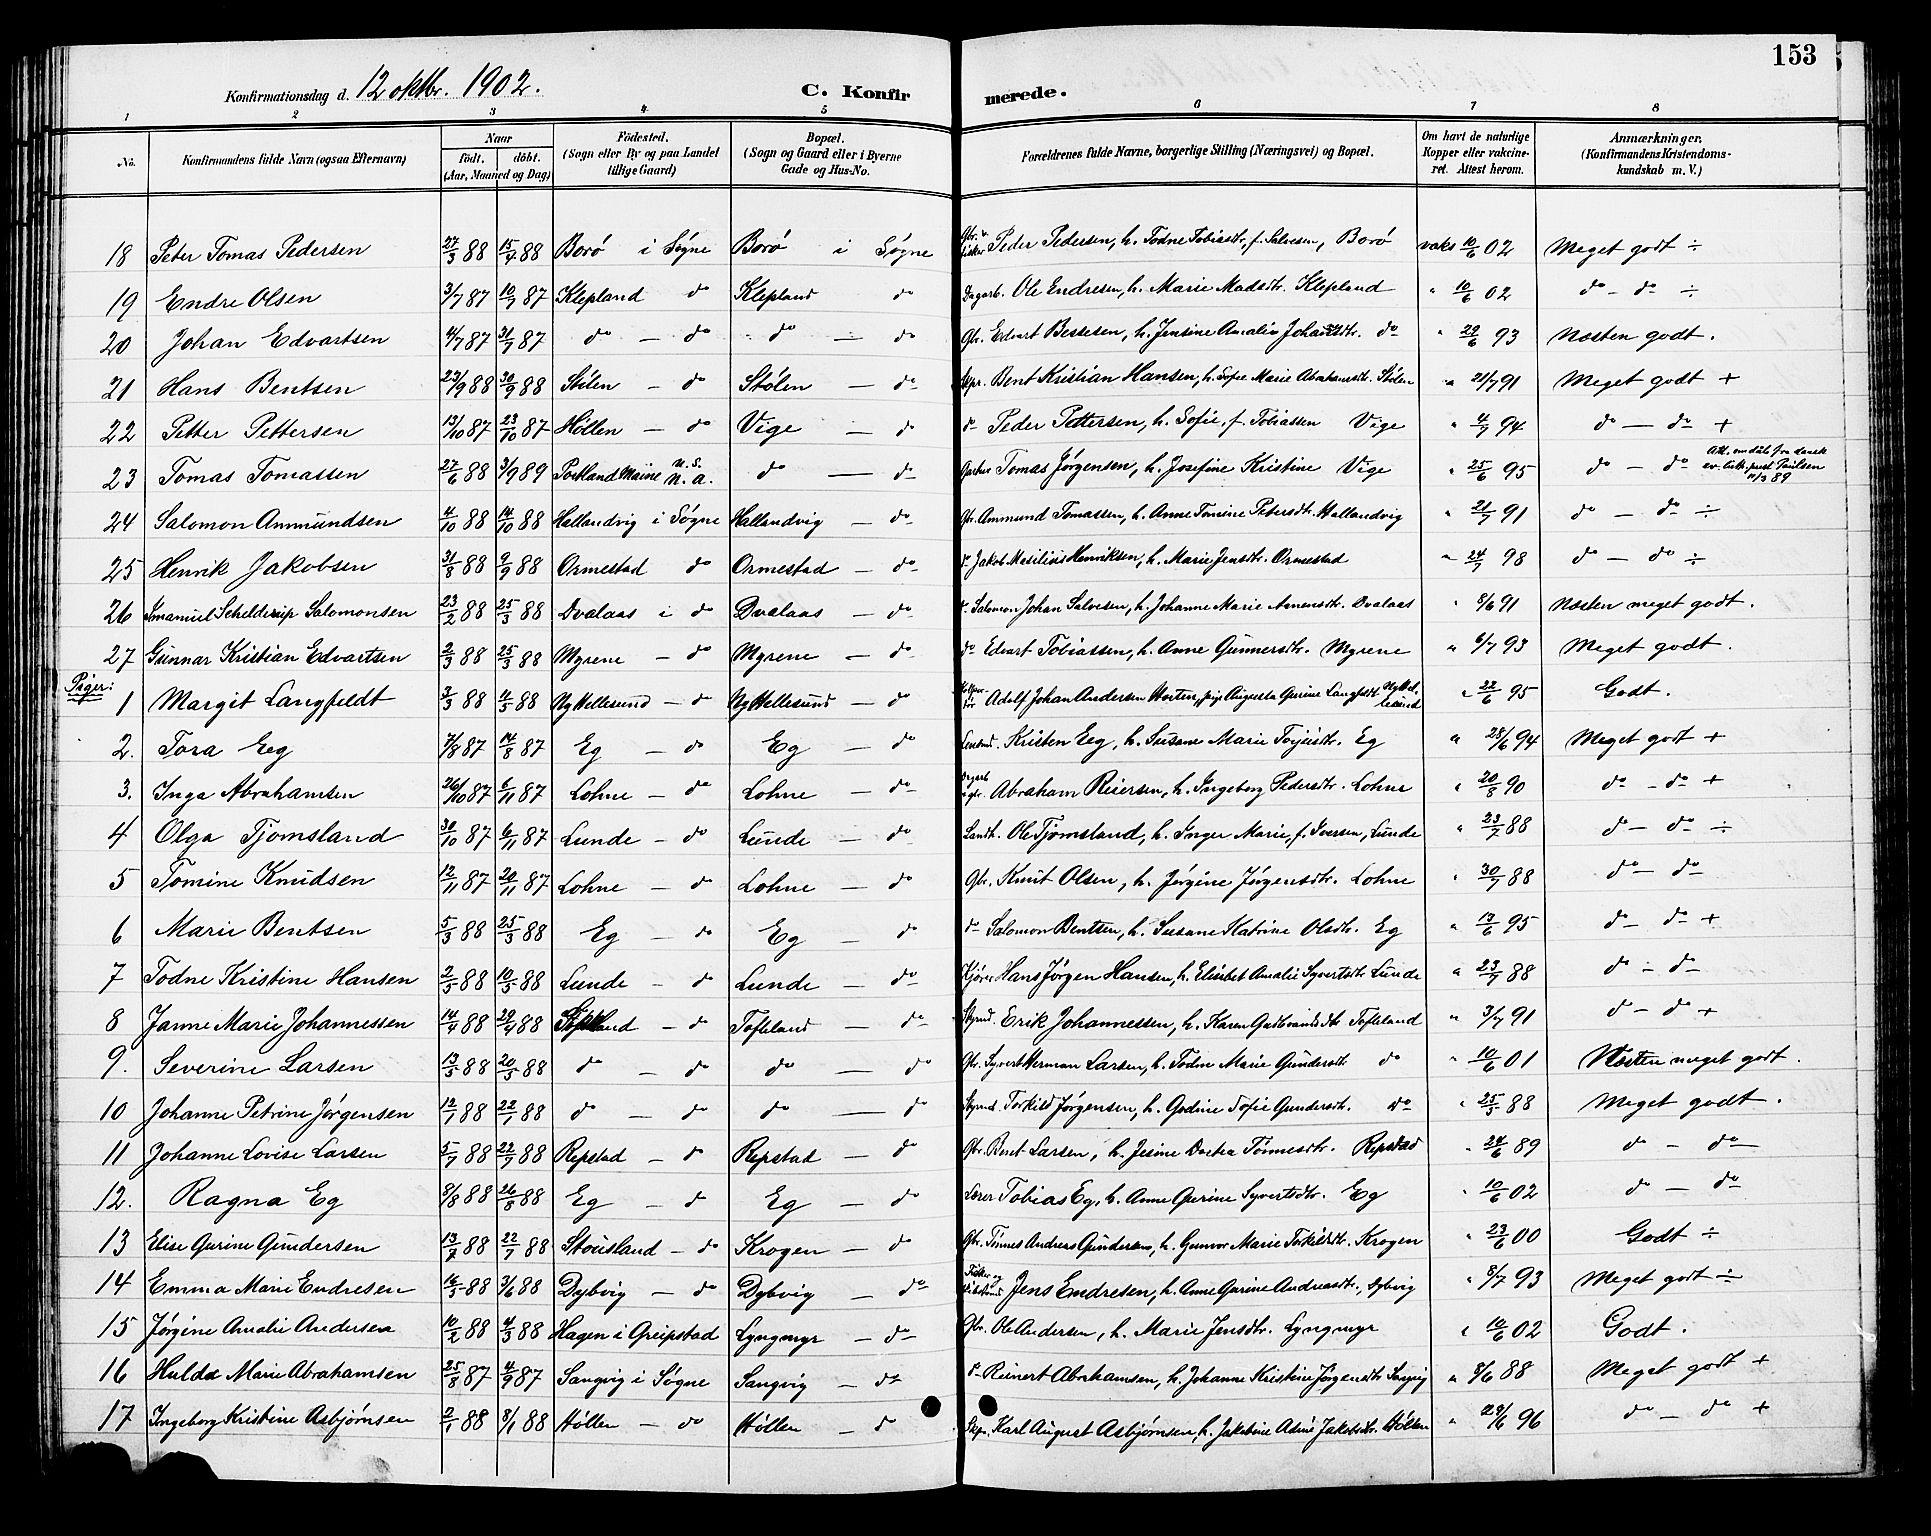 153
Konfirmationsdag d. 12 oktbr. 1902. C. Konfirmerede.
1 2 3 4 5 6 7 8
No. Konfirmandens fulde Navn (ogsaa Efternavn) Naar födt. döbt. (Aar, Maaned og Dag) Födested. (Sogn eller By og paa Landet tillige Gaard) Bopæl. (Sogn og Gaard eller i Byerne Gade og Hus-No. Forældrenes fulde Navne, borgerlige Stilling (Næringsvei) og Bopæl. Om havt de naturlige Kopper eller vakcineret. Attest herom. Anmærkninger. (Konfirmandens Kristendomskundskab m. V.)
18 Peter Tomas Pedersen 27/3 88 15/4 88 Borø i Søgne Borø i Søgne Gbr. v. fisker Peder Pedersen, h. Todne Tobiasdtr, f. Salvesen, Borø vaks 10/6 02 Meget godt ÷
19 Endre Olsen 3/7 87 10/7 87 Klepland do Klepland do Dagarb. Ole Endresen, h. Marie Madsdtr. Klepland " 10/6 02 do - do ÷
20 Johan Edvartsen 4/7 87 31/7 87 do - do do - do Gbr. Edvart Bessesen, h. Jensine Amalie Johansdtr. do " 29/6 93 Næsten godt.
21 Hans Bentsen 27/9 88 30/9 88 Stølen - do Stølen - do Skpr. Bent Kristian Hansen, h. Sofie Marie Abrahamsdtr. Stølen " 21/7 91 Meget godt +
22 Petter Pettersen 13/10 87 23/10 87 Høllen - do Vige - do do Peder Pettersen, h. Sofie, f. Tobiassen Vige " 4/7 94 do - do +
23 Tomas Tomassen 27/6 88 3/9 89 Portland Maine U.S. N.A. do - do Tomas Jørgensen, h. Josefine Kristine Vige " 25/6 95 do - do Att. om dåb fra dansk ev. luth. prest Poulsen 11/3 89
24 Salomon Ammundsen 4/10 88 14/10 88 Hallandvig i Søgne Hallandvig - do Gbr. Ammund Tomassen, h. Anne Tomine Petersdtr. Hallandvig " 21/7 91 do - do ÷
25 Henrik Jakobsen 31/8 88 9/9 88 Ormestad do Ormestad - do do Jakob Masilius Henriksen, h. Marie Jensdtr. Ormestad " 24/7 98 do - do ÷
26 Emanuel Schelderup Salomonsen 23/2 88 25/3 88 Dvalaas i do Dvalaas - do do Salomon Johan Salvesen, h. Johanne Marie Arnensdtr. Dvalaas " 8/6 91 Næsten meget godt.
27 Gunnar Kristian Edvartsen 2/3 88 25/3 88 Myrene - do Myrene - do do Edvart Tobiassen, h. Anne Gunnersdtr. Myrene " 6/7 93 Meget godt.
Piger:
1 Margit Langfeldt 3/3 88 4/5 88 Ny Hellesund - do Ny Hellesund - do Adolf Johan Andersen Morten, pige Augusta Gurine Langfeldt. Ny Hellesund " 22/6 95 Godt.
2. Tora Eeg 7/8 87 14/8 87 Eg - do Eg - do Lensmd. Kristen Eeg, h. Susane Marie Torjusdtr. Eg " 28/6 94 Meget godt +
3. Inga Abrahamsen 26/10 87 6/11 87 Lohne - do Lohne - do Dagarb. v. gbr. Abraham Reiersen, h. Ingeborg Pedersdtr. Lohne " 20/8 90 do - do +
4 Olga Tjomsland 30/10 87 6/11 87 Lunde - do Lunde - do Landh. Ole Tjomsland, h. Inger Marie, f. Iversen, Lunde " 23/7 88 do - do ÷
5 Tomine Knudsen 12/11 87 20/11 87 Lohne - do Lohne - do Gbr. Knut Olsen, h. Jørgine Jørgensdtr. Lohne " 30/7 88 do - do
6 Marie Bentsen 5/3 88 25/3 88 Eg - do Eg - do do Salomon Bentsen, h. Susane Katrine Olsdtr. Eg " 13/6 95 do - do +
7 Todne Kristine Hansen 2/3 88 10/5 88 Lunde - do Lunde - do Kjører Hans Jørgen Hansen, h. Elisabet Amalie Syvertsdtr Lunde " 23/7 88 do - do
8 Janne Marie Johannessen 14/4 88 29/4 88 Tofteland - do Tofteland - do Stymd. Erik Johannessen, h. Karen Gudbrandsdtr Tofteland " 3/7 91 do - do +
9. Severine Larsen 13/5 88 20/5 88 do - do do - do Gbr. Syvert Herman Larsen, h. Todne Marie Gundersdtr. do " 10/6 01 Næsten meget godt.
10 Johanne Petrine Jørgensen 12/1 88 22/1 88 do - do do - do Stymd. Torkild Jørgensen, h. Godine Tofie Gundersdtr. do " 25/5 88 Meget godt.
11 Johanne Lovise Larsen 5/7 88 22/7 88 Repstad - do Repstad - do Gbr. Bent Larsen, h. Jesine Dortea Tønnesdtr. Repstad " 24/6 89 do - do
12. Ragna Eg 8/8 88 26/8 88 Eg - do Eg - do Lærer Tobias Eg, h. Anne Gurine Syvertsdtr. Eg " 10/6 02 do - do
13 Elise Gurine Gundersen 13/7 88 22/7 88 Stousland - do Krogen - do Gbr. Tønnes Andreas Gundersen, h. Gunvor Marie Torkildsdtr. Krogen " 23/6 00 Godt ÷
14 Emma Marie Endresen 16/5 88 3/6 88 Dybvig - do Dybvig - do Fisker og Jens Endresen, h. Anne Gurine Andreasdtr., Dybvig " 8/7 93 Meget godt ÷
15 Jørgine Amalie Andersen 10/2 88 4/3 88 Hagen i Greipstad Lyngmyr - do Gbr. Ole Andersen, h. Marie Jensdtr. Lyngmyr " 10/6 02 Godt.
16 Hulda Marie Abrahamsen 25/8 87 4/9 87 Sangvig i Søgne Sangvig - do do Reinert Abrahamsen, h. Johanne Kristine Jørgensdtr Sangvig " 8/6 88 Meget godt +
17 Ingeborg Kristine Asbjørnsen 2/1 88 8/1 88 Høllen - do Høllen - do Skpr. Karl August Asbjørnsen, h. Jakobine Adine Jakobsdtr. Høllen " 29/6 96 do - do +